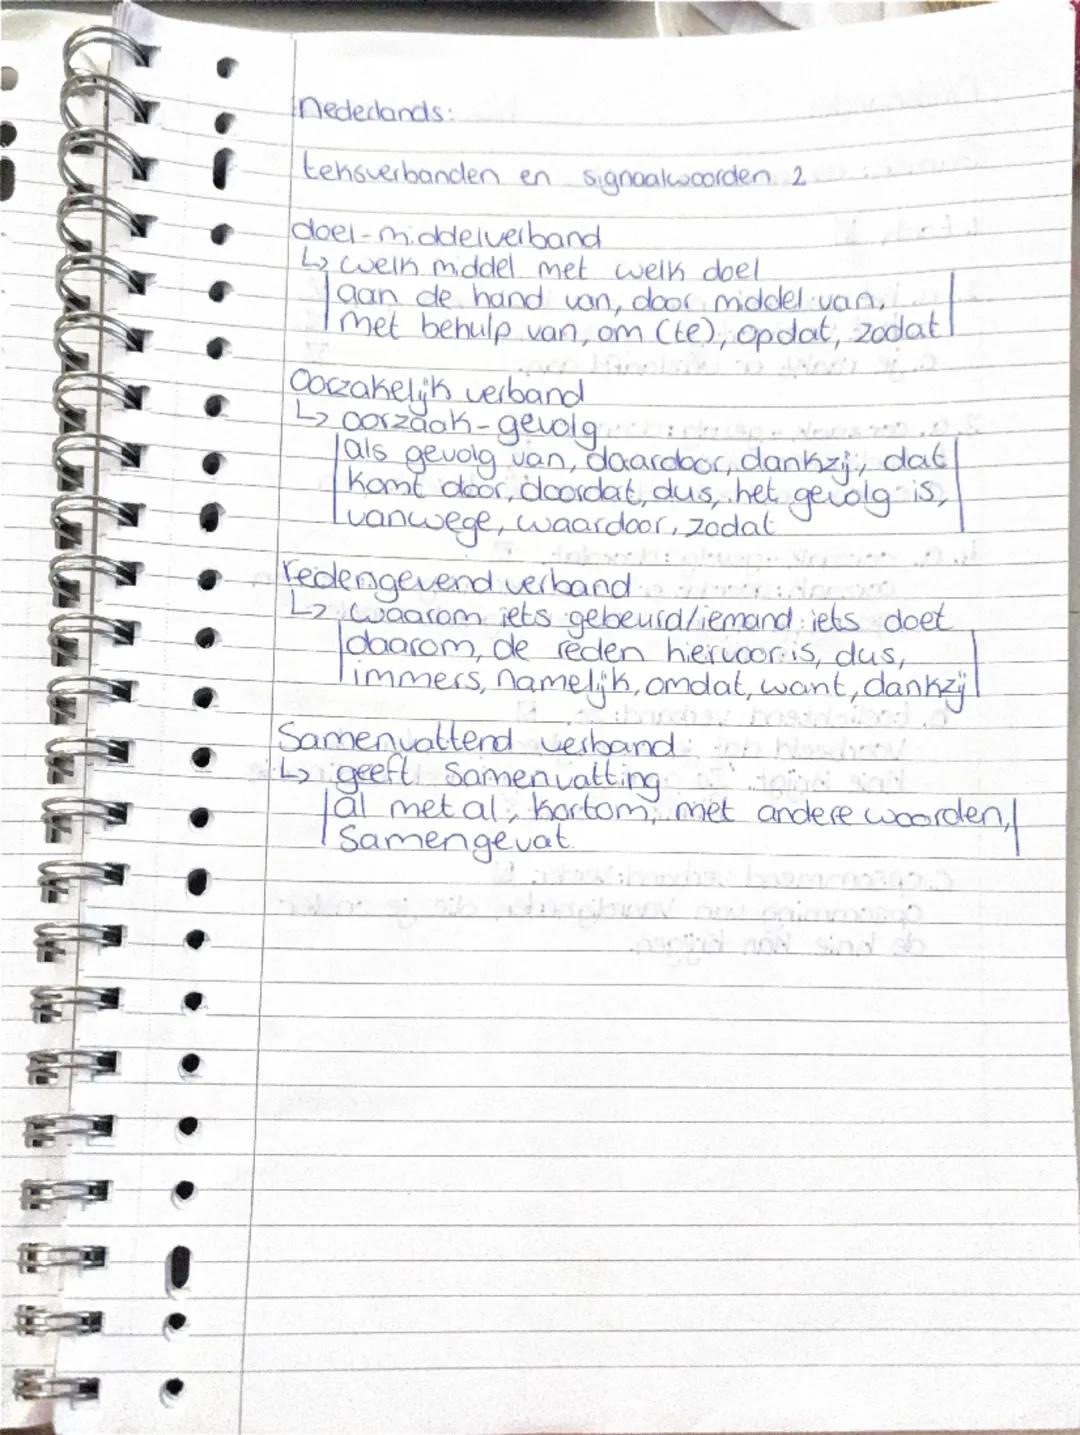 Nederlands:
teksverbanden en signaalwoorden 2
doel-middelverband
↳ welk middel met welk doel
aan de hand van, door middel van,
met behulp van, om (te), opdat, zodat
Oorzakelijk verband
↳ oorzaak-gevolg
als gevolg van, daardoor, dankzij, dat
komt door, doordat, dus, het gevolg is,
vanwege, waardoor, zodat
redengevend verband
↳ waarom iets gebeurd/iemand iets doet
daarom, de reden hiervoor is, dus,
immers, namelijk, omdat, want, dankzij
Samenvattend verband
↳ geeft samenvatting
al met al, kortom, met andere woorden,
Samengevat.